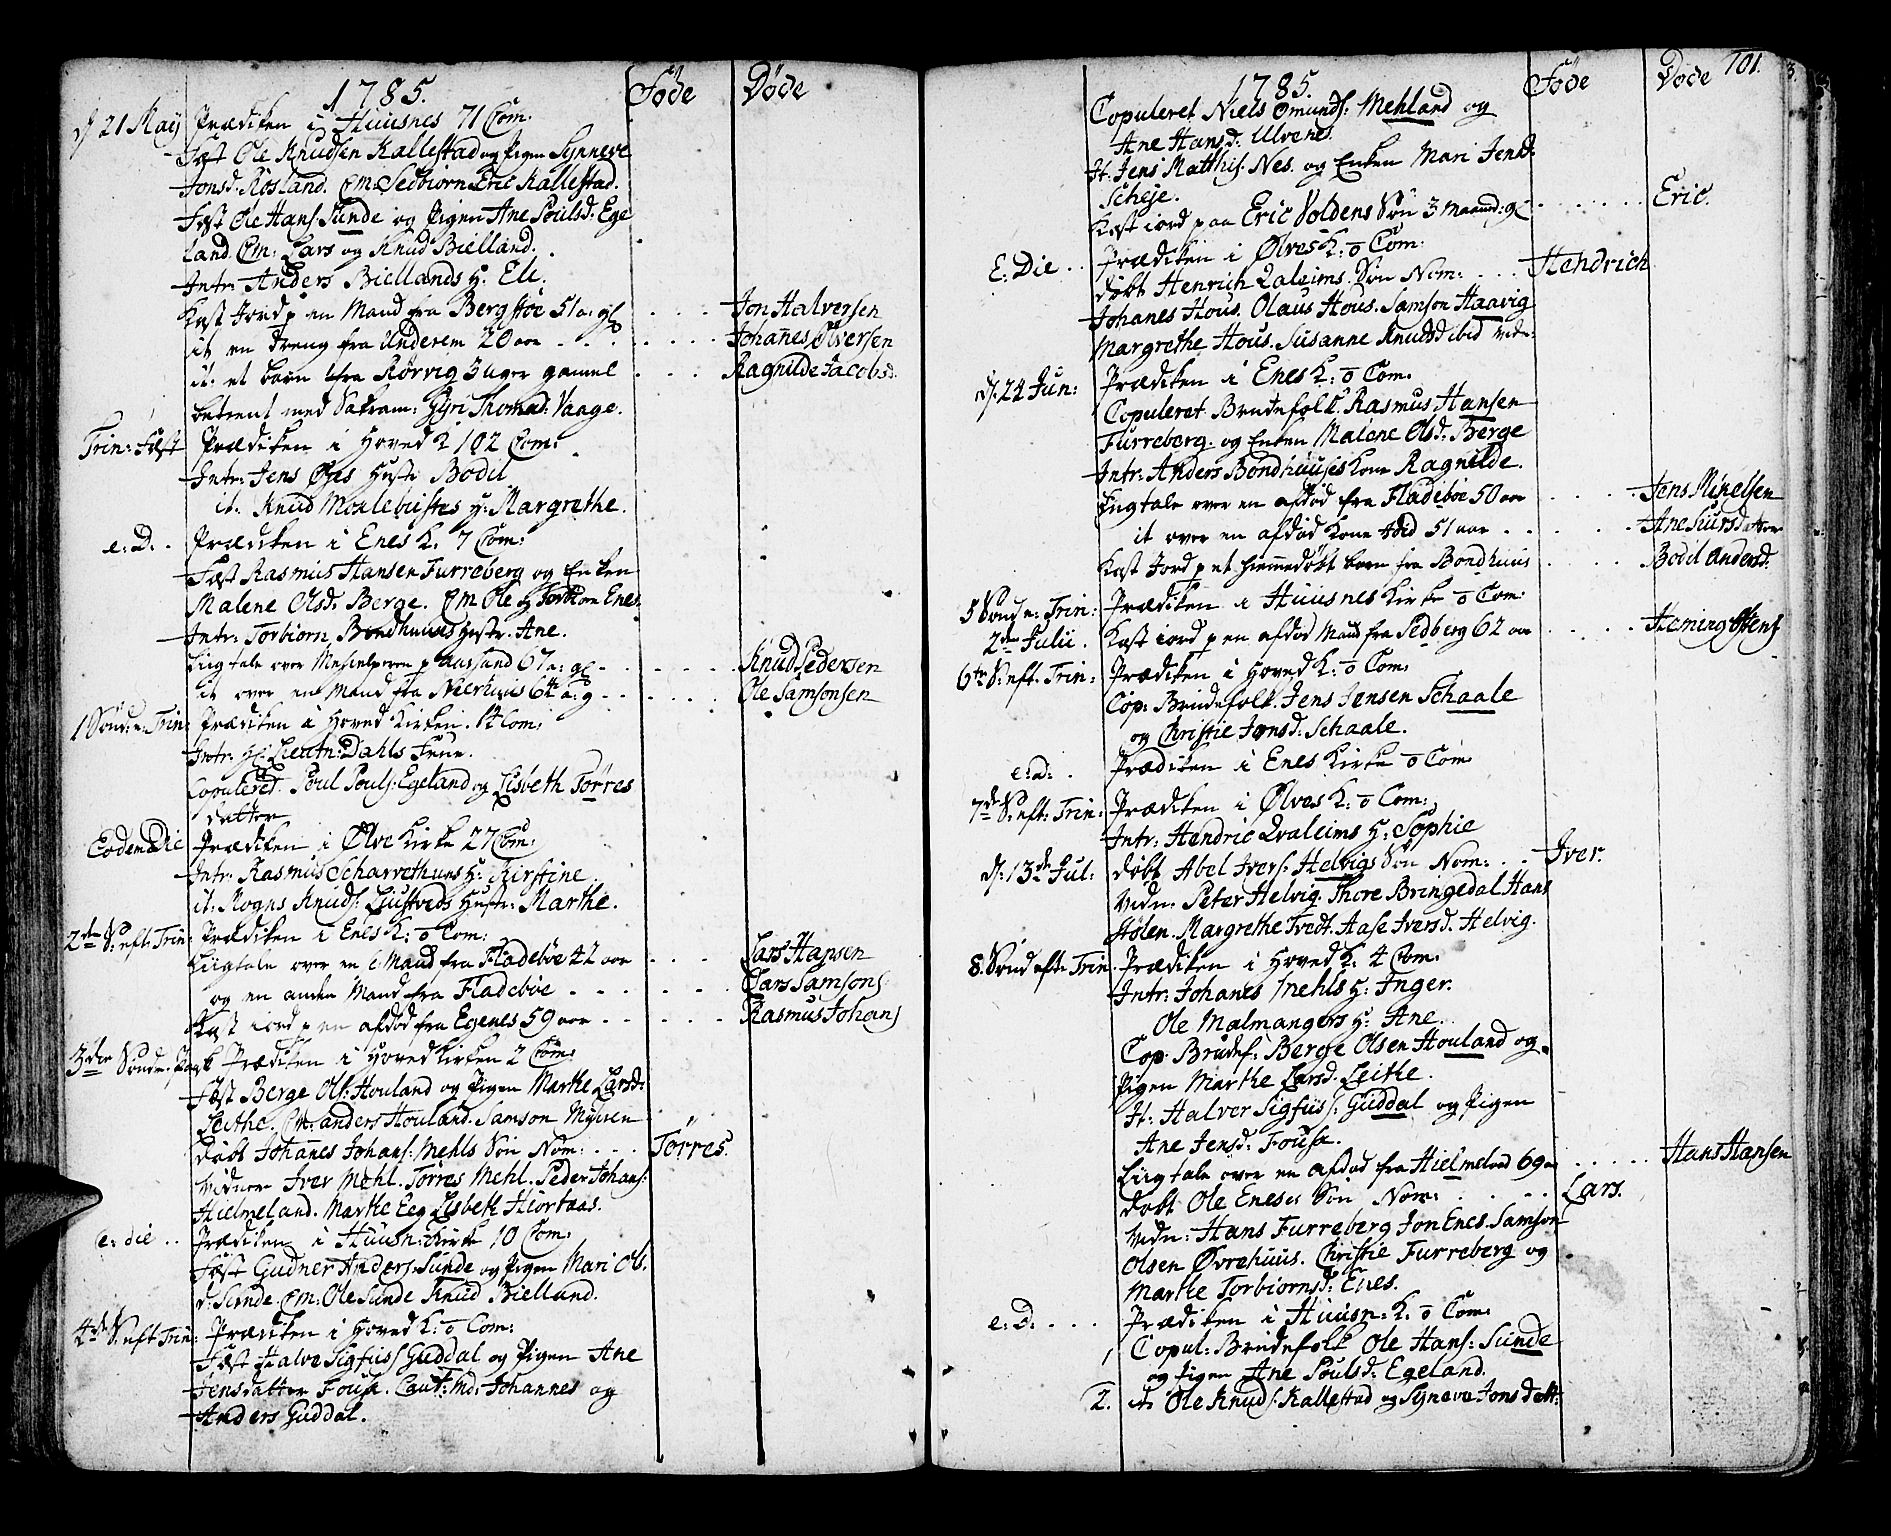 1785. Föde Döde
d 21 May Prædiken i Huusnes 71 Com.
Fæst Ole Knudsen Kallestad og Pigen Synneve
Jonsd. Røsland. Cm. Sedbiorn Eric Kallestad.
Fæst Ole Hans. Sunde og Pigen Ane Poulsd: Ege
land. Cm: Lars og Knud Bielland.
Intr: Anders Biellands H. Eli.
Kast Jord p en Mand fra Bergstøe 51 a: gl . . . . Jon Halversen
it en dreng fra Underem 20 aar . . . . Johanes Øiversen
it: et barn fra Rørvig 3 uger gamel . . . Ragnilde Jacobsd.
betient med Sakram: Gyri Thomasd: Vaage.
Trin: Fæst Prædiken i Hoved K 102 Com:
Intr: Jens Øyes Hustr Bodil
it. Knud Moelebustes H: Margrethe.
e: d. . Prædiken i Enes K. 7 Com:
Fæst Rasmus Hansen Furreberg og Enken
Malene Olsd: Berge. Cm Ole og Torbiorn Enes.
Intr: Torbiorn Bondhuuses Hustr. Ane.
Liigtale over Medhielperen p Aarsand 67 a: gl . . . . Knud Pedersen
it over en Mand fra Neerhuus 64 a: g . . . Ole Samsonsen
1 Sønd: e: Trin: Prædiken i Hoved Kirken. 14 Com:
Intr: Hl Lieutn: Dahls Frue.
Copulered. Poul Pouls: Egeland og Lisbeth Törres
datter
Eodem Die Prædiken i Ølve Kirke 27 Com:
Intr: Rasmus Scharvethuns H: Kirstine.
it: Rogns Knuds: Liustveds Hustr: Marthe.
2den S: eft: Trin: Prædiken i Enes K: o Com:
Liigtale over en Mand fra Fladebøe 42 aar . . . Lars Hansen
og en anden Mand fra Fladebøe . . . . . . Lars Samsons:
Kast iord p en afdød fra Egenes 59 aar . . . . . Rasmus Johans
3die Sønd: Prædiken i Hoved Kirken 2 Com:
Fæst Berge Ols: Houland og Pigen Marthe Larsd:
Leithe. Cm: anders Houland. Samson Myren
døbt Johanes Johans: Mehls Søn Nom: . . . Törres.
Vidner Iver Mehl. Törres Mehl. Peder Johans:
Hielmeland. Marthe Eeg Lisbeth Hiortaas.
e: die . . Prædiken i Huusn: Kirke 10 Com:
Fæst Gudner Anders: Sunde og Pigen Mari Ols:
d: Sunde. Cm: Ole Sunde Knud Bielland.
4de S: eft Trin: Prædiken i Hoved K: o Com:
Fæst Halve Sigfuss Guddal og Pigen Ane
Jensdatter Fousa. Caut: Md. Johannes og
Anders Guddal.
1785. Föde Døde 101.
Copuleret Niels Omunds: Mehland og
Ane Hansd: Ulvenes.
It: Jens Matthis. Nes. og Enken Mari Jensd.
Scheje.
Kast iord paa Eric Voldens Søn 3 Maaned: gl . . . . . . . Eric.
E: Die . . Prædiken i Ølves K: o Com:
døbt Henrich Qvaleims Søn Nom: . . . Hendrich
Johanes Hous. Olaus Hous. Samson Haavig
Margrethe Hous. Susanne Knudsd ibid vidn:
d: 24 Jun: Prædiken i Enes K: o Com:
Copuleret Brudefolk. Rasmus Hansen
Furreberg. og Enken Malene Olsd: Berge
Intr: Anders Bondhuuses Kone Ragnilde.
Liigtale over en afdød fra Fladebøe 50 aar . . . . Jens Mikelsen
it over en afdød Kone ibid 51 aar . . . . . Ane Siursdatter
Kast Jord p et hiemmedøbt barn fra Bondhuus . . . . Bodil Andersd.
5 Sønd e: Trin: Prædiken i Huusnes Kirke o Com:
2den Julii . Kast iord p en afdød Mand fra Sedberg 62 aar . . . . . Heming Østens
6te S: eft. Trin: Prædiken i Hoved K: o Com:
Cop: Brudefolk. Jens Jensen Schaale
og Christie Jonsd: Schaale.
e: d: . Prædiken i Enes Kirke o Com
7de S: eft: Trin: Prædiken i Ølves K: o Com:
Intr: Hendric Qvaleims H: Sophie
d: 13de Jul: døbt Abel Ivers: Helvigs Søn Nom: . . Iver.
Vidn: Peter Helvig. Thore Bringedal Hans
Stølen. Margrethe Tvedt. Aase Iversd. Helvig.
8. Sønd eft: Trin. Prædiken i Hoved K: 4 Com:
Intr: Johanes Mehls H: Inger.
Ole Malmangers H: Ane.
Cop: Brudef: Berge Olsen Houland og
Pigen Marthe Larsd. Leithe.
It: Halver Sigfuss: Guddal og Pigen
Ane Jensd: Fousa.
Liigtale over en afdød fra Hielmeland 69 aar . . . . . Hans Hansen
døbt Ole Eneses Søn Nom: . . . . . Lars.
Vidn: Hans Furreberg Jon Enes. Samson
Olsen Øvrehuus. Christie Furreberg og
Marthe Torbiornsd: Enes.
e: D. . . . Prædiken i Huusn: K: o Com:
1 Copul: Brudefolk Ole Hans: Sunde
og Pigen Ane Poulsd: Egeland.
2. it Ole Knuds: Kallestad og Syneva Jonsdatt: